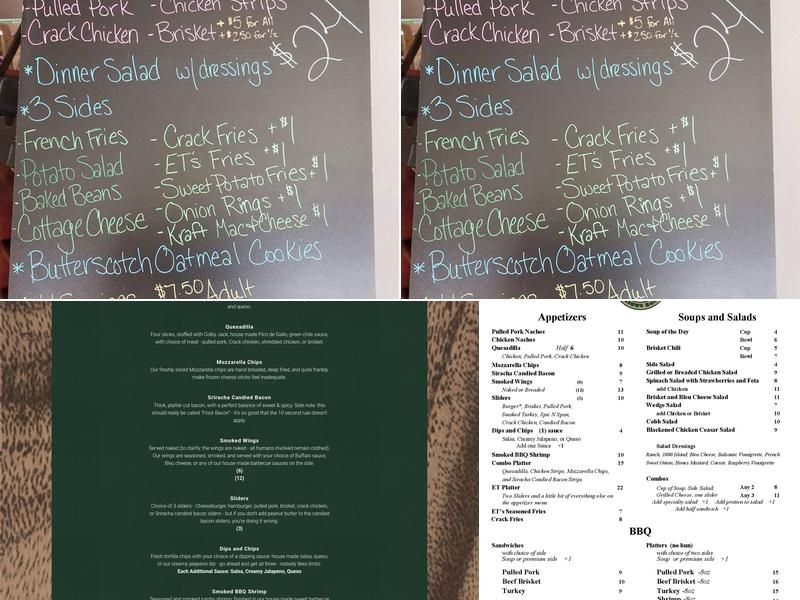 -Pulled Pork - Chicken Strips
-Crack Chicken - Brisket + $5 for All
+$2.50 for 1/2
$24
*Dinner Salad w/dressings
*3 Sides
-French Fries - Crack Fries +$1
-Potato Salad - ET's Fries +$1
-Baked Beans - Sweet Potato Fries +$1
-Cottage Cheese - Onion Rings +$1
- Kraft Mac & Cheese $1
* Butterscotch Oatmeal Cookies
$7.50 Adult
-Pulled Pork - Chicken Strips
-Crack Chicken - Brisket + $5 for All
+$2.50 for 1/2
$24
*Dinner Salad w/dressings
*3 Sides
-French Fries - Crack Fries +$1
-Potato Salad - ET's Fries +$1
-Baked Beans - Sweet Potato Fries +$1
-Cottage Cheese - Onion Rings +$1
- Kraft Mac & Cheese $1
* Butterscotch Oatmeal Cookies
$7.50 Adult
and queso.
Quesadilla
Four slices, stuffed with Colby Jack, house made Pico de Gallo, green chile sauce,
with choice of meat - pulled pork, Crack chicken, shredded chicken, or brisket.
Mozzarella Chips
Our freshly sliced Mozzarella chips are hand breaded, deep fried, and quite frankly,
make frozen cheese sticks feel inadequate.
Sriracha Candied Bacon
Thick, platter cut bacon, with a perfect balance of sweet & spicy. Side note: this
should really be called "Floor Bacon" - it's so good that the 10 second rule doesn't
apply.
Smoked Wings
Served naked (to clarify: the wings are naked - all humans involved remain clothed).
Our wings are seasoned, smoked, and served with your choice of Buffalo sauce,
Bleu cheese, or any of our house made barbecue sauces on the side.
(6)
(12)
Sliders
Choice of 3 sliders - Cheeseburger, hamburger, pulled pork, brisket, crack chicken,
or Sriracha candied bacon sliders - but if you don't add peanut butter to the candied
bacon sliders, you're doing it wrong.
(3)
Dips and Chips
Fresh tortilla chips with your choice of a dipping sauce: house made salsa, queso,
or our creamy jalapeno dip - go ahead and get all three - nobody likes limits.
Each Additional Sauce: Salsa, Creamy Jalapeno, Queso
Smoked BBQ Shrimp
Appetizers
Pulled Pork Nachos 11
Chicken Nachos 10
Quesadilla Half 6 10
Chicken, Pulled Pork, Crack Chicken
Mozzarella Chips 8
Siracha Candied Bacon 9
Smoked Wings (6) 7
Naked or Breaded (12) 13
Sliders (3) 10
Burger*, Brisket, Pulled Pork,
Smoked Turkey, Spic N Span,
Crack Chicken, Candied Bacon
Dips and Chips (1) sauce 4
Salsa, Creamy Jalapeno, or Queso
Add one Sauce +1
Smoked BBQ Shrimp 10
Combo Platter 15
Quesadilla, Chicken Strips, Mozzarella Chips,
and Siracha Candied Bacon Strips
ET Platter 22
Two Sliders and a little bit of everything else on
the appetizer menu
ET's Seasoned Fries 7
Crack Fries 8
Soups and Salads
Soup of the Day Cup 4
Bowl 6
Brisket Chili Cup 5
Bowl 7
Side Salad 4
Grilled or Breaded Chicken Salad 9
Spinach Salad with Strawberries and Feta 8
add Chicken 11
Brisket and Bleu Cheese Salad 11
Wedge Salad 7
add Chicken or Brisket 10
Cobb Salad 10
Blackened Chicken Ceasar Salad 9
Salad Dressings
Ranch, 1000 Island, Bleu Cheese, Balsamic Vinaigrette, French
Sweet Onion, Honey Mustard, Caesar, Raspberry Vinaigrette
Combos
Cup of Soup, Side Salad, Any 2 8
Grilled Cheese, one slider Any 3 11
Add specialty salad +1 Add protein to salad +1
Add half sandwich +1
BBQ
Sandwiches
with choice of side
Soup or premium side +1
Pulled Pork 9
Beef Brisket 10
Turkey 9
Platters (no bun)
with choice of two sides
Soup or premium side +1
Pulled Pork -8oz 15
Beef Brisket -8oz 16
Turkey -8oz 15
Shrimp 15